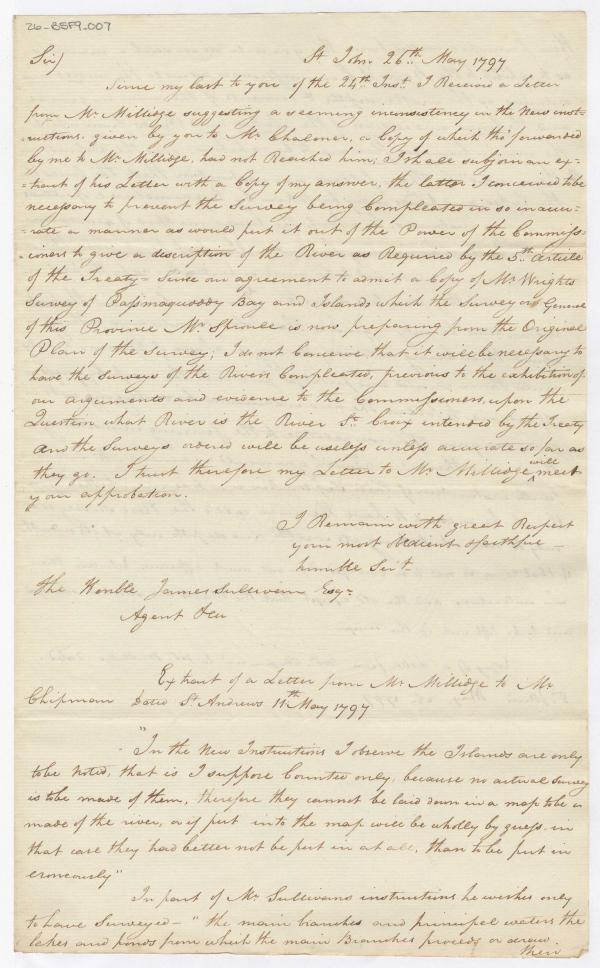 26-BSF9-007
Sir) St John 26th May 1797
Since my last to you of the 24th Inst. I Received a Letter
from Mr Millidge suggesting a seeming inconsistency in the New inst-
-ructions, given by you to Mr Chaloner, a Copy of which tho' forwarded
by me to Mr Millidge, had not Reached him; I shall subjoin an ex-
-tract of his Letter with a Copy of my answer, the latter I conceived to be
necessary to prevent the Survey being Compleated in so inaccu-
-rate a manner as would put it out of the Power of the Commiss-
-ioners to give a discription of the River as Required by the 5th Article
of the Treaty - Since our agreement to admit a Copy of Mr Wrights
Survey of Passmaquoddy Bay and Islands which the Surveyor General
of this Province Mr Sproule is now preparing from the Original
Plan of the Survey; I do not Conceive that it will be necessary to
have the Surveys of the Rivers Compleated, previous to the exhibition of
our arguments and evidence to the Commissioners, upon the
Question what River is the River St Croix intended by the Treaty
and the Surveys ordered will be useless unless accurate so far as
they go. I trust therefore my Letter to Mr Millidge will meet
your approbation.
I Remain with great Respect
your most obedient & faithful
humble Sert
The Honble James Sullivan Esqr
Agent &c
Extract of a Letter from Mr Millidge to Mr
Chipman dated St Andrews 11th May 1797
"In the New Instructions I observe the Islands are only
to be Noted, that is I suppose Counted only, because no actual Survey
is to be made of them, therefore they cannot be laid down in a map to be
made of the river, or if put into the map will be wholly by guess. in
that case they had better not be put in at all, than to be put in
eroneously"
In part of Mr Sullivans instructions he wishes only
to have Surveyed - "the main branches and principal waters the
lakes and ponds from which the main Branches proceeds or draw
their